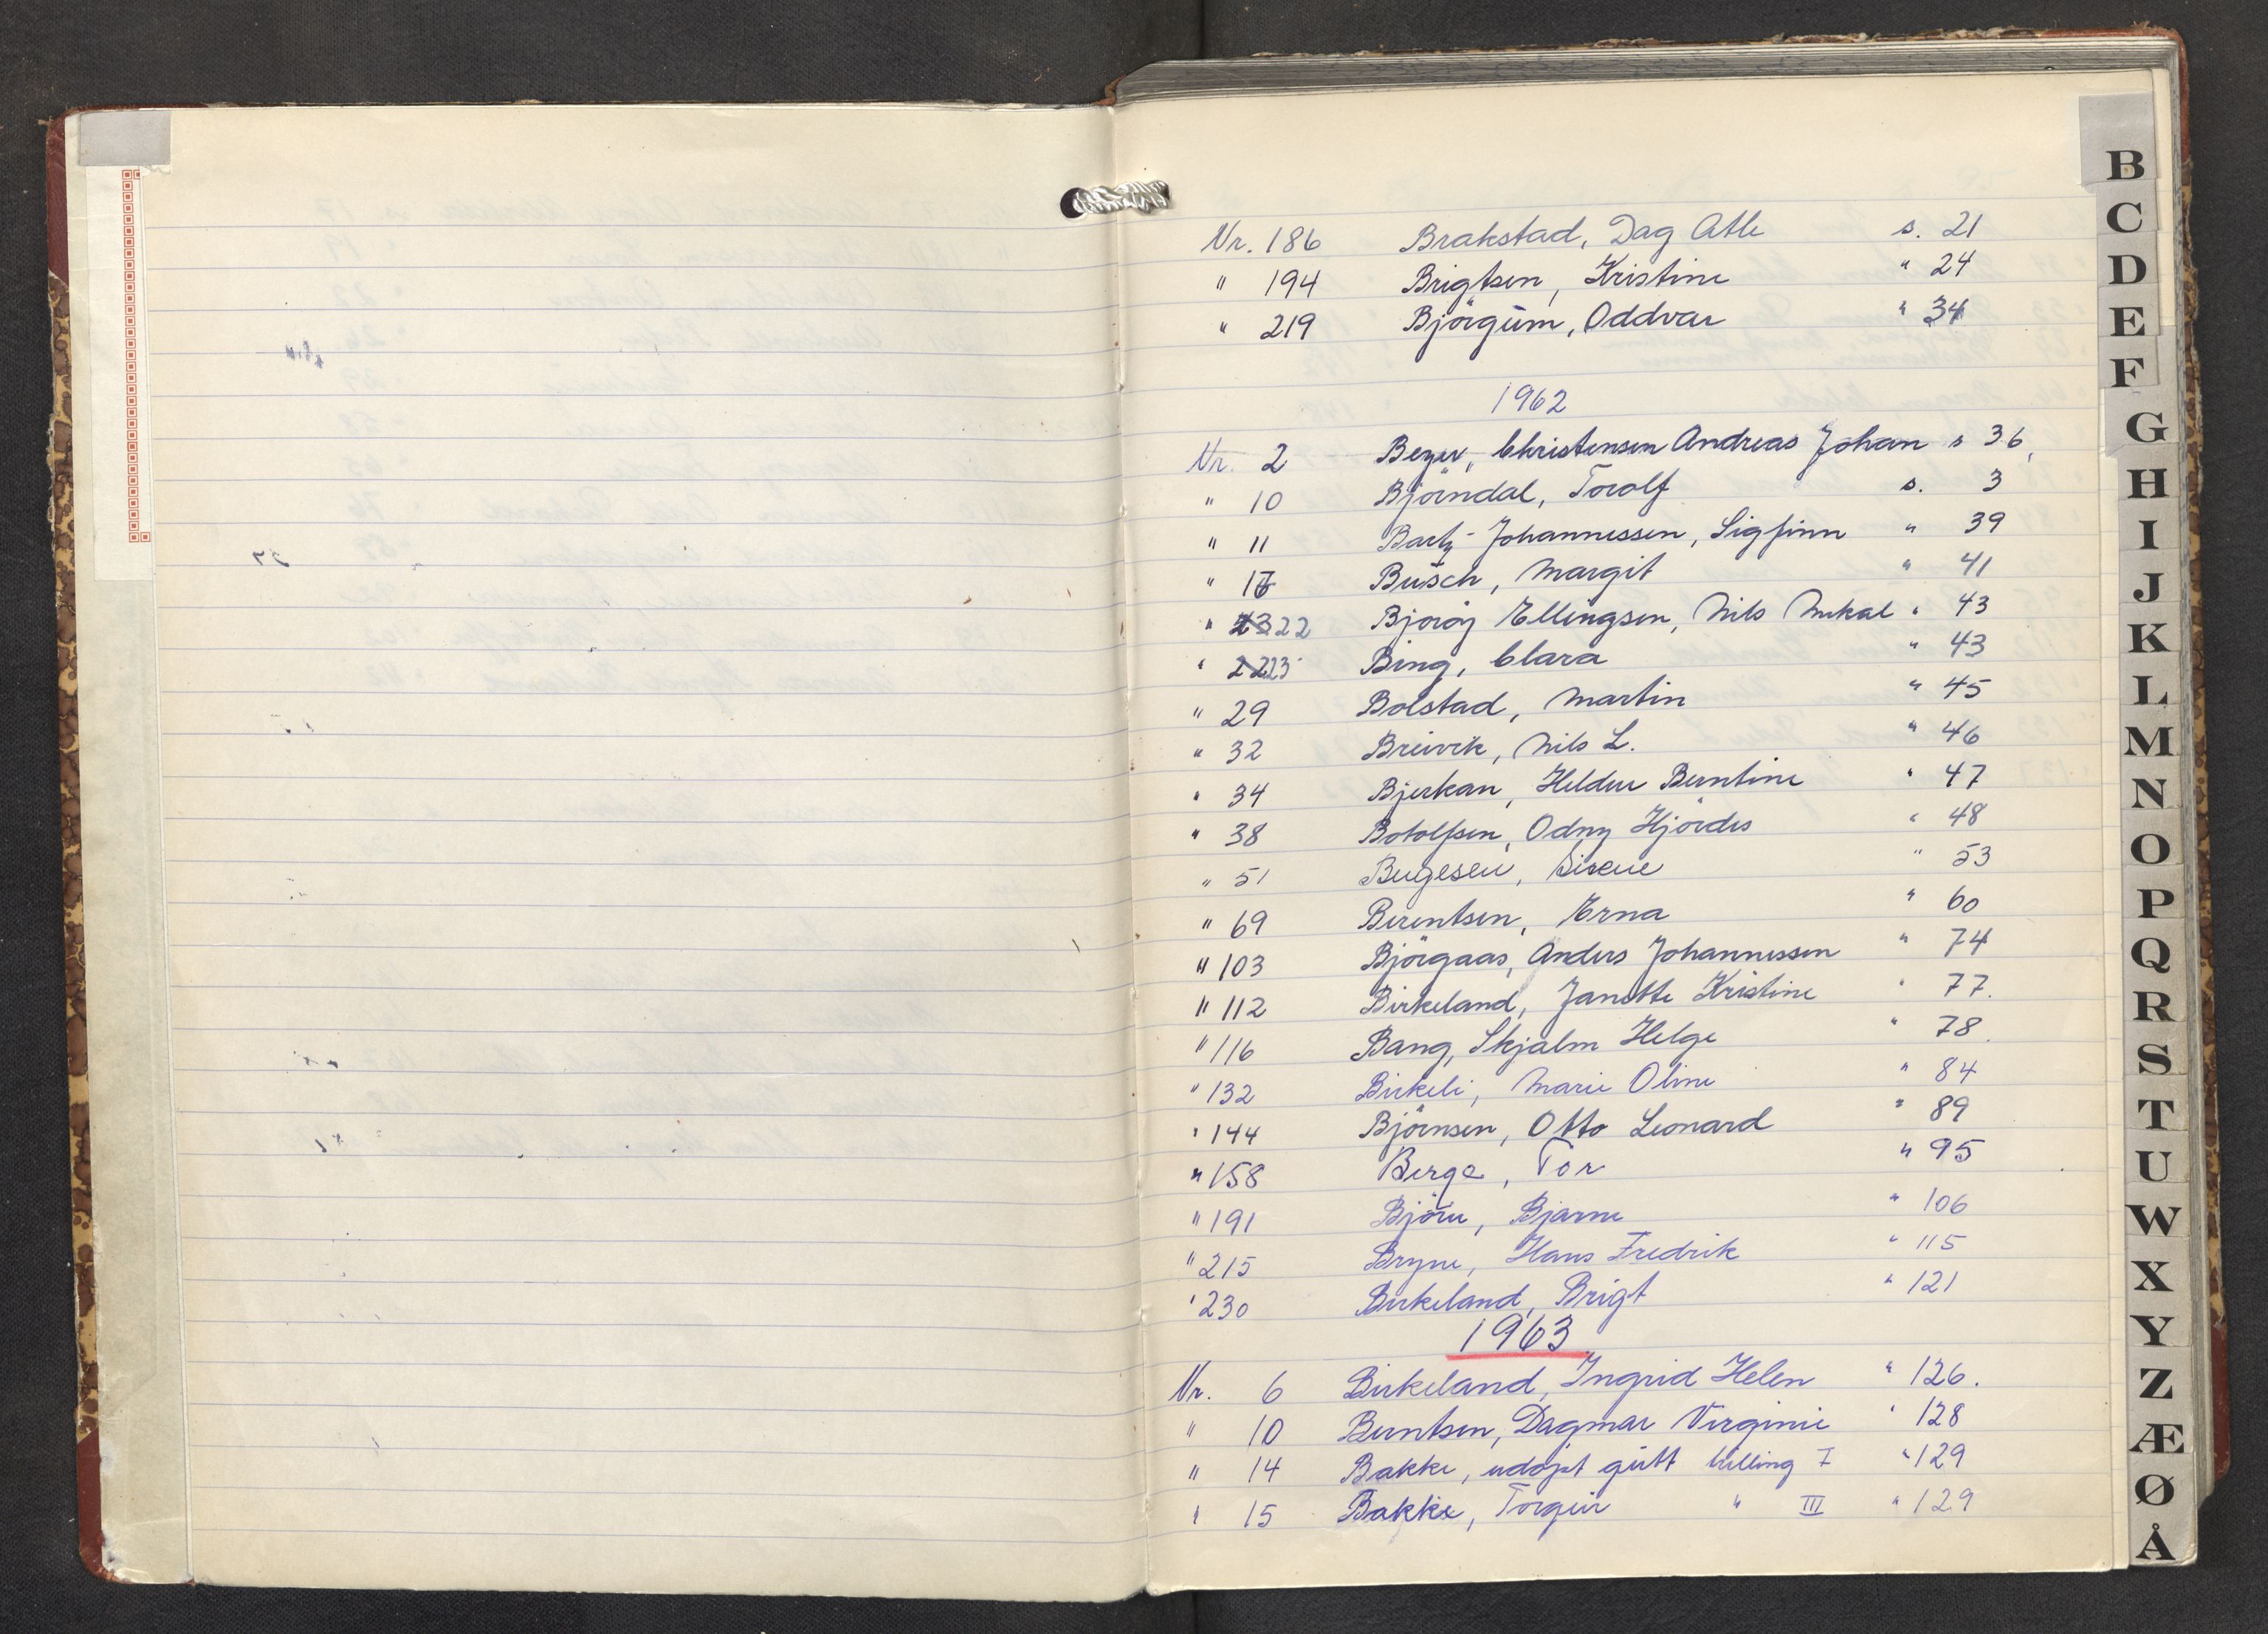 Nr. 186 Brakstad, Dag Atle s. 21
" 194 Brigtsen, Kristine " 24
" 219 Bjørgum, Oddvar " 34
1962
Nr. 2 Beyer, Christensen Andreas Johan s 36
" 10 Bjørndal, Torolf s. 3
" 11 Bartz-Johannessen, Sigfinn " 39
" 16 Busch, Margit " 41
" 22 Bjorøy Ellingsen, Nils Mikal " 43
" 23 Bing, Clara " 43
" 29 Bolstad, Martin " 45
" 32 Breivik, Nils L. " 46
" 34 Bjerkan, Heldur Berntine " 47
" 38 Botolfsen, Odny Hjørdis " 48
" 51 Birgesen, Sirene " 53
" 69 Berentsen, Erna " 60
" 103 Bjørgaas, Anders Johannessen " 74
" 112 Birkeland, Janette Kristine " 77.
" 116 Bang, Skjalm Helge " 78.
" 132 Birkeli, Marie Oline " 84
" 144 Bjørnsen, Otto Leonard " 89
" 158 Berge, Tor " 95
" 191 Bjørn, Bjarne " 106
" 215 Bryne, Hans Fredrik " 115
" 230 Birkeland, Brigt " 121
1963
Nr. 6 Birkeland, Ingrid Helen " 126.
" 10 Berntsen, Dagmar Virginie " 128
" 14 Bakke, udøpt gutt tvilling I " 129
" 15 Bakke, Torgeir " III " 129
B
C
D
E
F
G
H
I
J
K
L
M
N
O
P
Q
R
S
T
U
W
X
Y
Z
Æ
Ø
Å